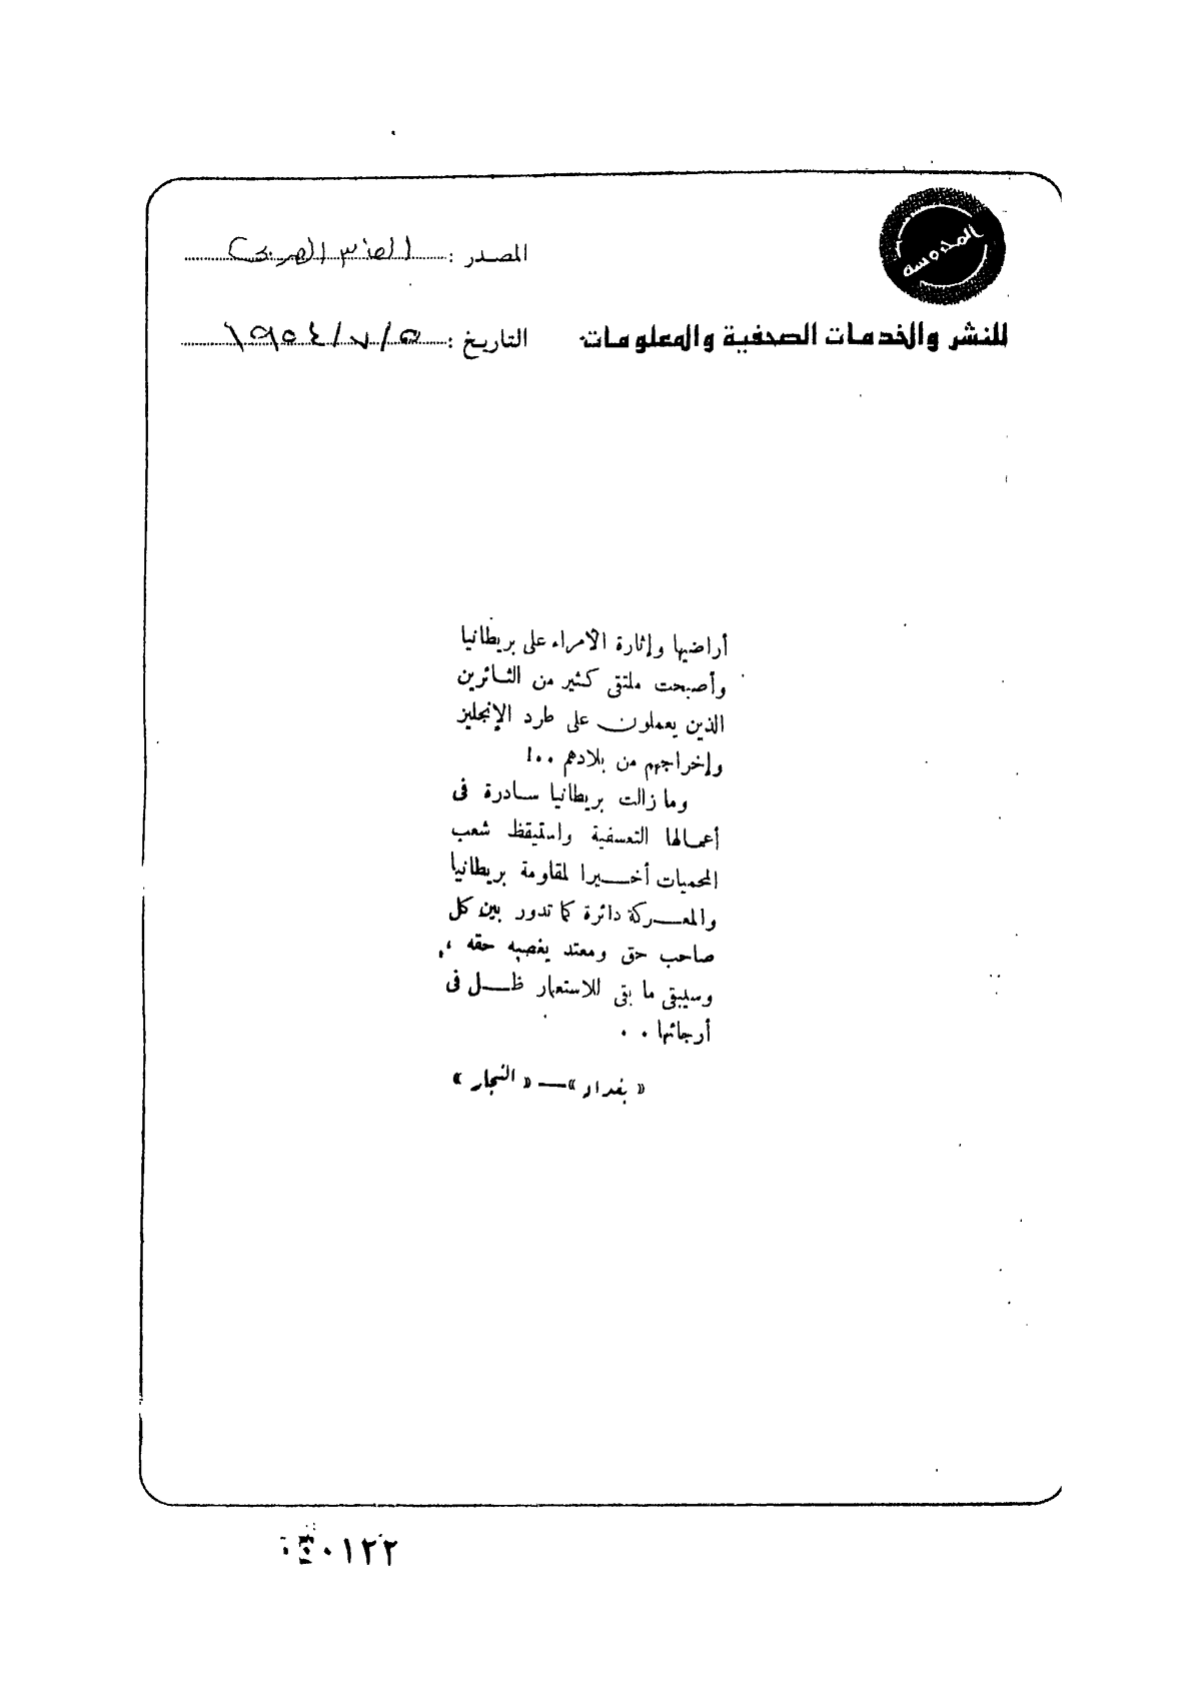 المحروسة
للنشر والخدمات الصحفية والمعلومات
المصدر :
التاريخ : ٥/٧/١٩٥٤
أراضيها وإثارة الأمراء على بريطانيا
وأصبحت ملتقى كثير من الثائرين
الذين يعملون على طرد الإنجليز
وإخراجهم من بلادهم ..!
وما زالت بريطانيا سادرة فى
أعمالها التعسفية واستيقظ شعب
المحميات أخيرا لمقاومة بريطانيا
والمعركة دائرة كما تدور بين كل
صاحب حق ومعتد يغصبه حقه ،
وسيبقى ما بقى للاستعمار ظل فى
أرجائها . .
« بغداد » — « النجار »
٠١٢٢